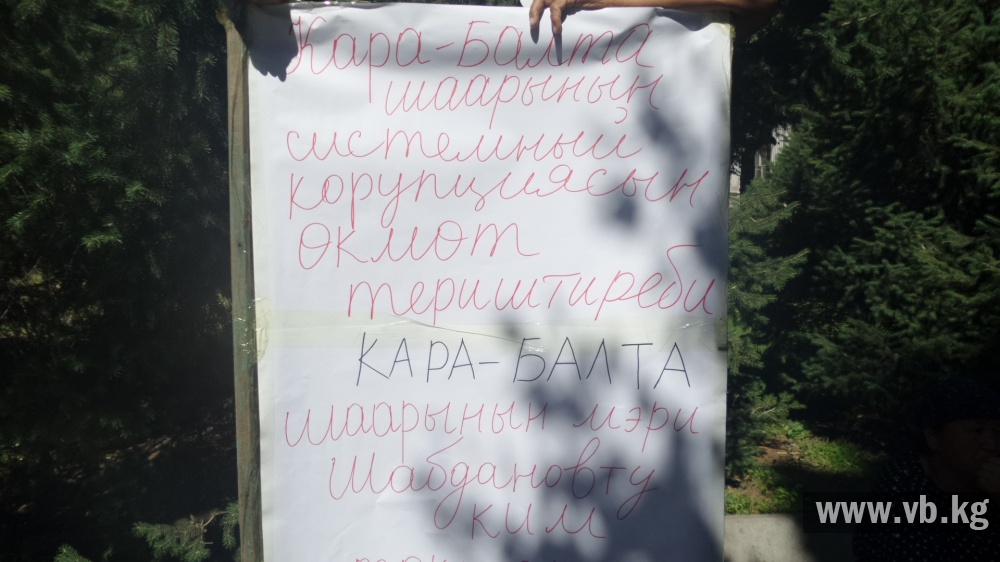 Кара-Балта
шаарынын
системный
корупциясын
окмот
териштиреби
КАРА-БАЛТА
шаарынын мэри
Шабдановту
ким
www.vb.kg